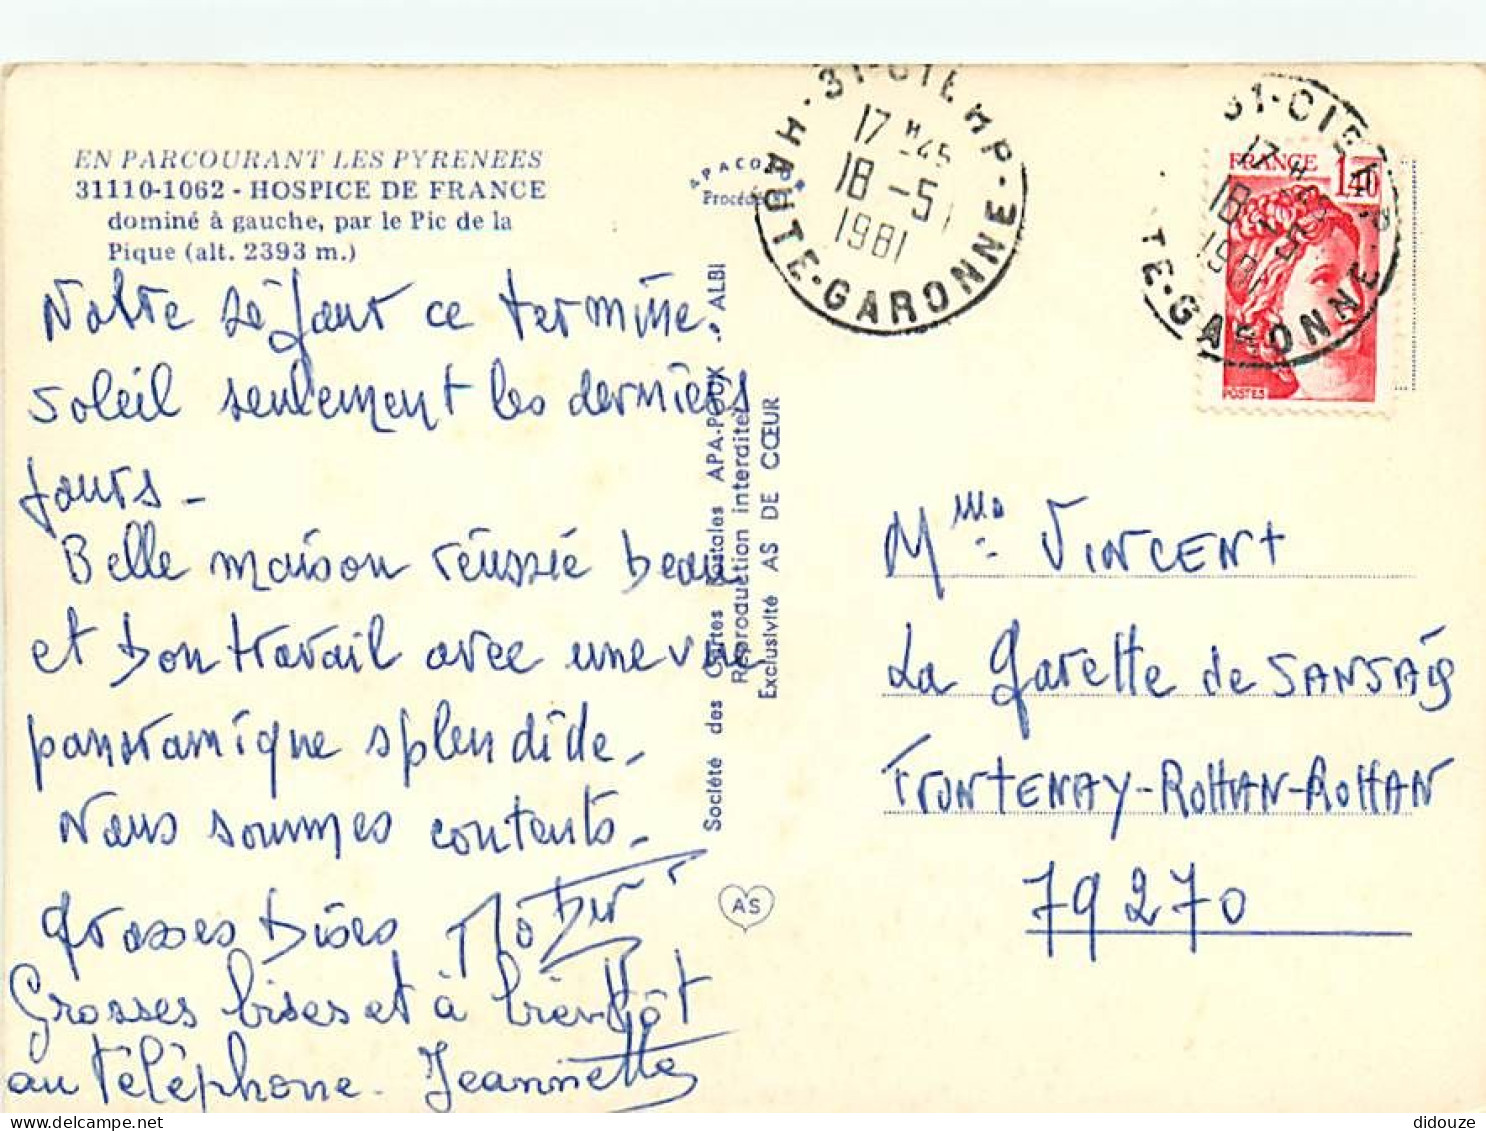 EN PARCOURANT LES PYRENEES
31110-1062 - HOSPICE DE FRANCE
dominé à gauche, par le Pic de la
Pique (alt. 2393 m.)
Notre séjour ce termine.
soleil seulement les derniers
jours -
Belle maison réussie beau
et bon travail avec une vue
panoramique splendide.
Nous sommes contents.
Grosses bises
Grosses bises et à bientôt
au téléphone. Jeannette
Société des Cartes Postales APA-POUX - ALBI
Reproduction interdite
Exclusivité AS DE CŒUR
AS
31-CIER-
17 H 45
18 -5
1981
HAUTE-GARONNE
FRANCE
1,40
POSTES
Mme VINCENT
La Garette de SANSAIS
FRONTENAY-ROHAN-ROHAN
79270
didouze